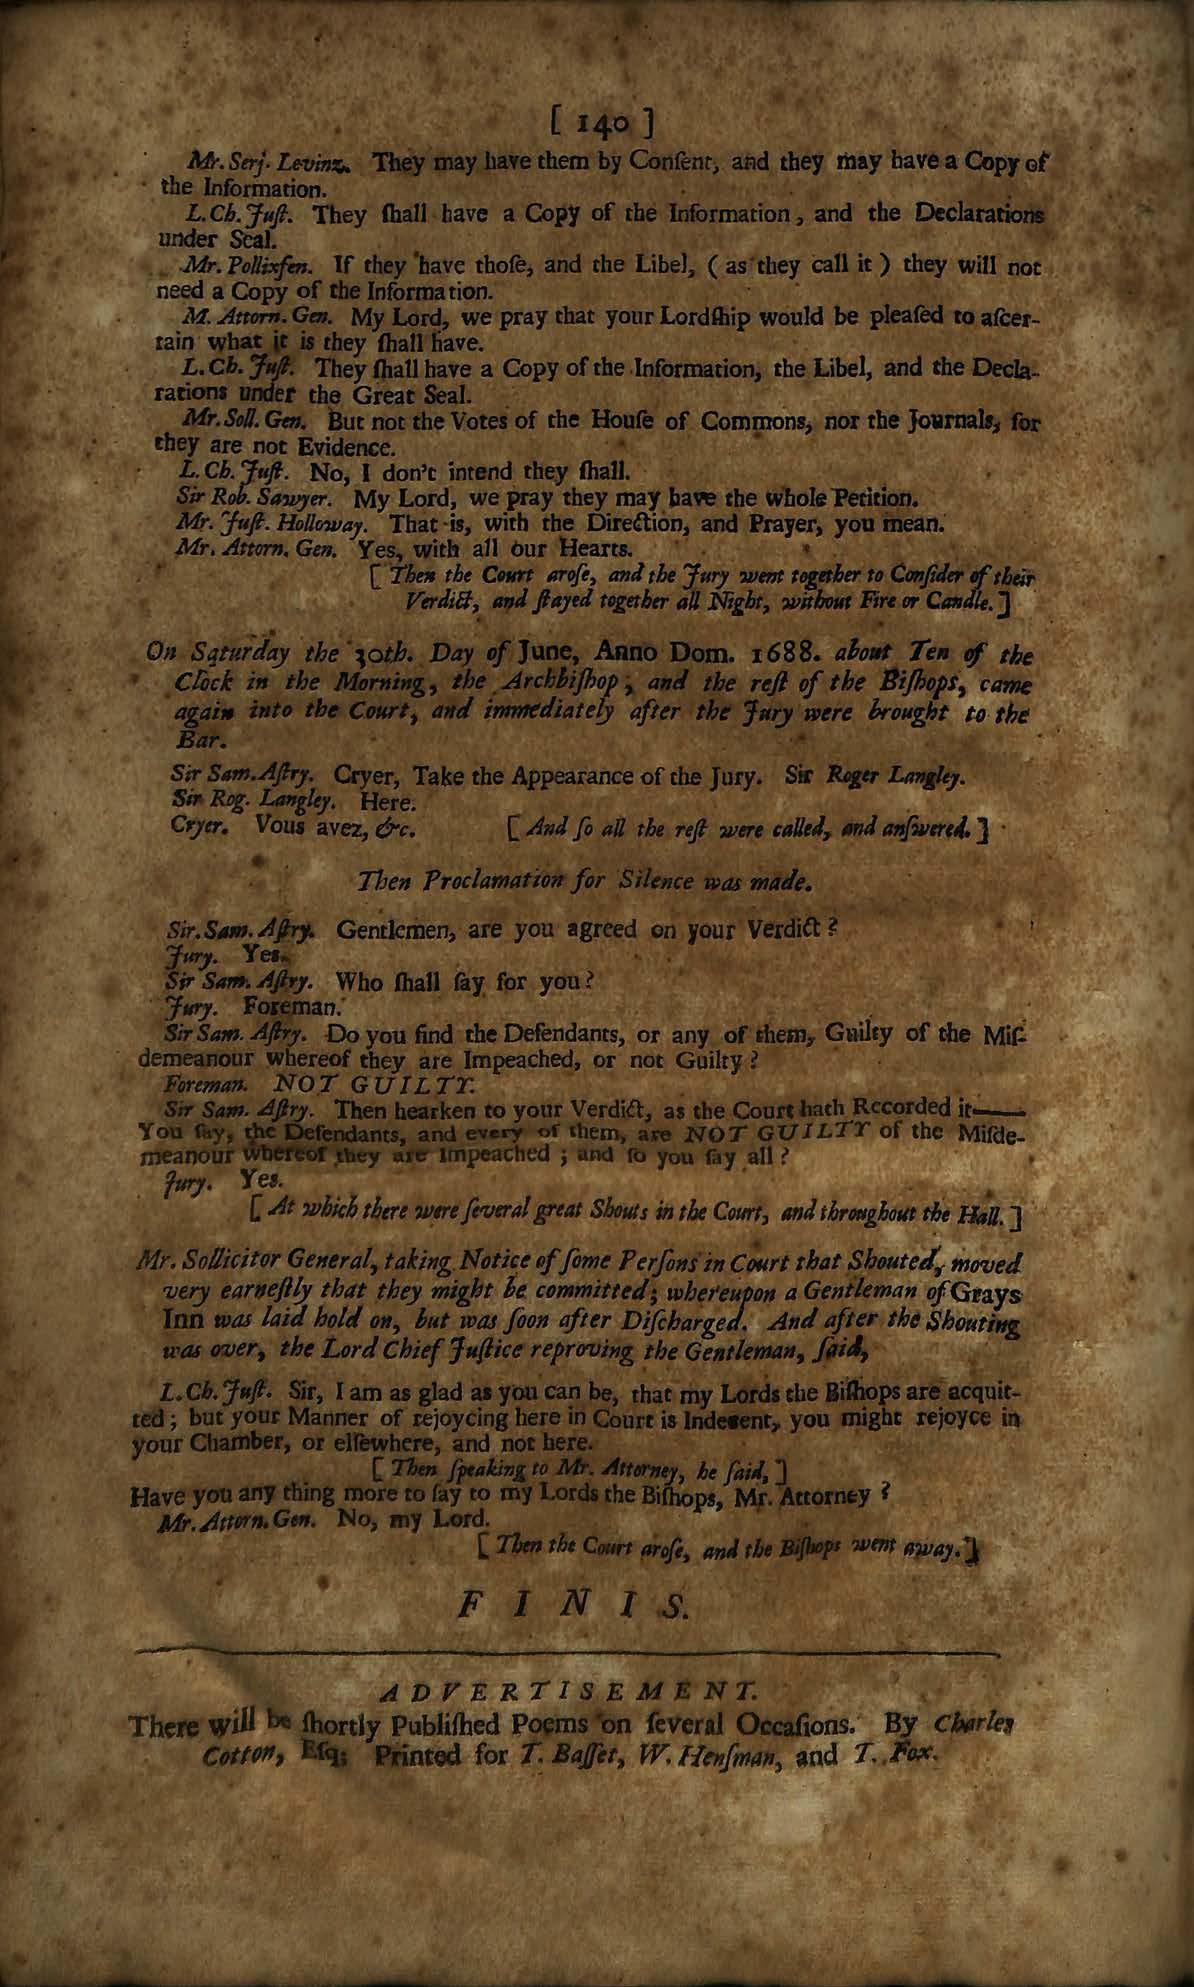 [ 140 ]
Mr. Serj. Levinz. They may have them by Conſent, and they may have a Copy of
the Information.
L. Ch. Juſt. They ſhall have a Copy of the Information, and the Declarations
under Seal.
Mr. Pollixfen. If they have thoſe, and the Libel, ( as they call it ) they will not
need a Copy of the Information.
M. Attorn. Gen. My Lord, we pray that your Lordſhip would be pleaſed to aſcer-
tain what it is they ſhall have.
L. Ch. Juſt. They ſhall have a Copy of the Information, the Libel, and the Decla-
rations under the Great Seal.
Mr. Soll. Gen. But not the Votes of the Houſe of Commons, nor the Journals, for
they are not Evidence.
L. Ch. Juſt. No, I don't intend they ſhall.
Sir Rob. Sawyer. My Lord, we pray they may have the whole Petition.
Mr. Juſt. Holloway. That is, with the Direction, and Prayer, you mean.
Mr. Attorn. Gen. Yes, with all our Hearts.
[ Then the Court aroſe, and the Jury went together to Conſider of their
Verdict, and ſtayed together all Night, without Fire or Candle. ]
On Saturday the 30th. Day of June, Anno Dom. 1688. about Ten of the
Clock in the Morning, the Archbiſhop, and the reſt of the Biſhops, came
again into the Court, and immediately after the Jury were brought to the
Bar.
Sir Sam. Aſtry. Cryer, Take the Appearance of the Jury. Sir Roger Langley.
Sir Rog. Langley. Here.
Cryer. Vous avez, &c. [ And ſo all the reſt were called, and anſwered. ]
Then Proclamation for Silence was made.
Sir. Sam. Aſtry. Gentlemen, are you agreed on your Verdict ?
Jury. Yes.
Sir Sam. Aſtry. Who ſhall ſay for you ?
Jury. Foreman.
Sir Sam. Aſtry. Do you find the Defendants, or any of them, Guilty of the Miſ-
demeanour whereof they are Impeached, or not Guilty ?
Foreman. NOT GUILTY.
Sir Sam. Aſtry. Then hearken to your Verdict, as the Court hath Recorded it——
You ſay, the Defendants, and every of them, are NOT GUILTY of the Miſde-
meanour whereof they are Impeached ; and ſo you ſay all ?
Jury. Yes.
[ At which there were ſeveral great Shouts in the Court, and throughout the Hall. ]
Mr. Sollicitor General, taking Notice of ſome Perſons in Court that Shouted, moved
very earneſtly that they might be committed; whereupon a Gentleman of Grays
Inn was laid hold on, but was ſoon after Diſcharged. And after the Shouting
was over, the Lord Chief Juſtice reproving the Gentleman, ſaid,
L. Ch. Juſt. Sir, I am as glad as you can be, that my Lords the Biſhops are acquit-
ted ; but your Manner of rejoycing here in Court is Indecent, you might rejoyce in
your Chamber, or elſewhere, and not here.
[ Then ſpeaking to Mr. Attorney, he ſaid, ]
Have you any thing more to ſay to my Lords the Biſhops, Mr. Attorney ?
Mr. Attorn. Gen. No, my Lord.
[ Then the Court aroſe, and the Biſhops went away. ]
F I N I S.
ADVERTISEMENT.
There will be ſhortly Publiſhed Poems on ſeveral Occaſions. By Charles
Cotton, Eſq; Printed for T. Baſſet, W. Henſman, and T. Fox.